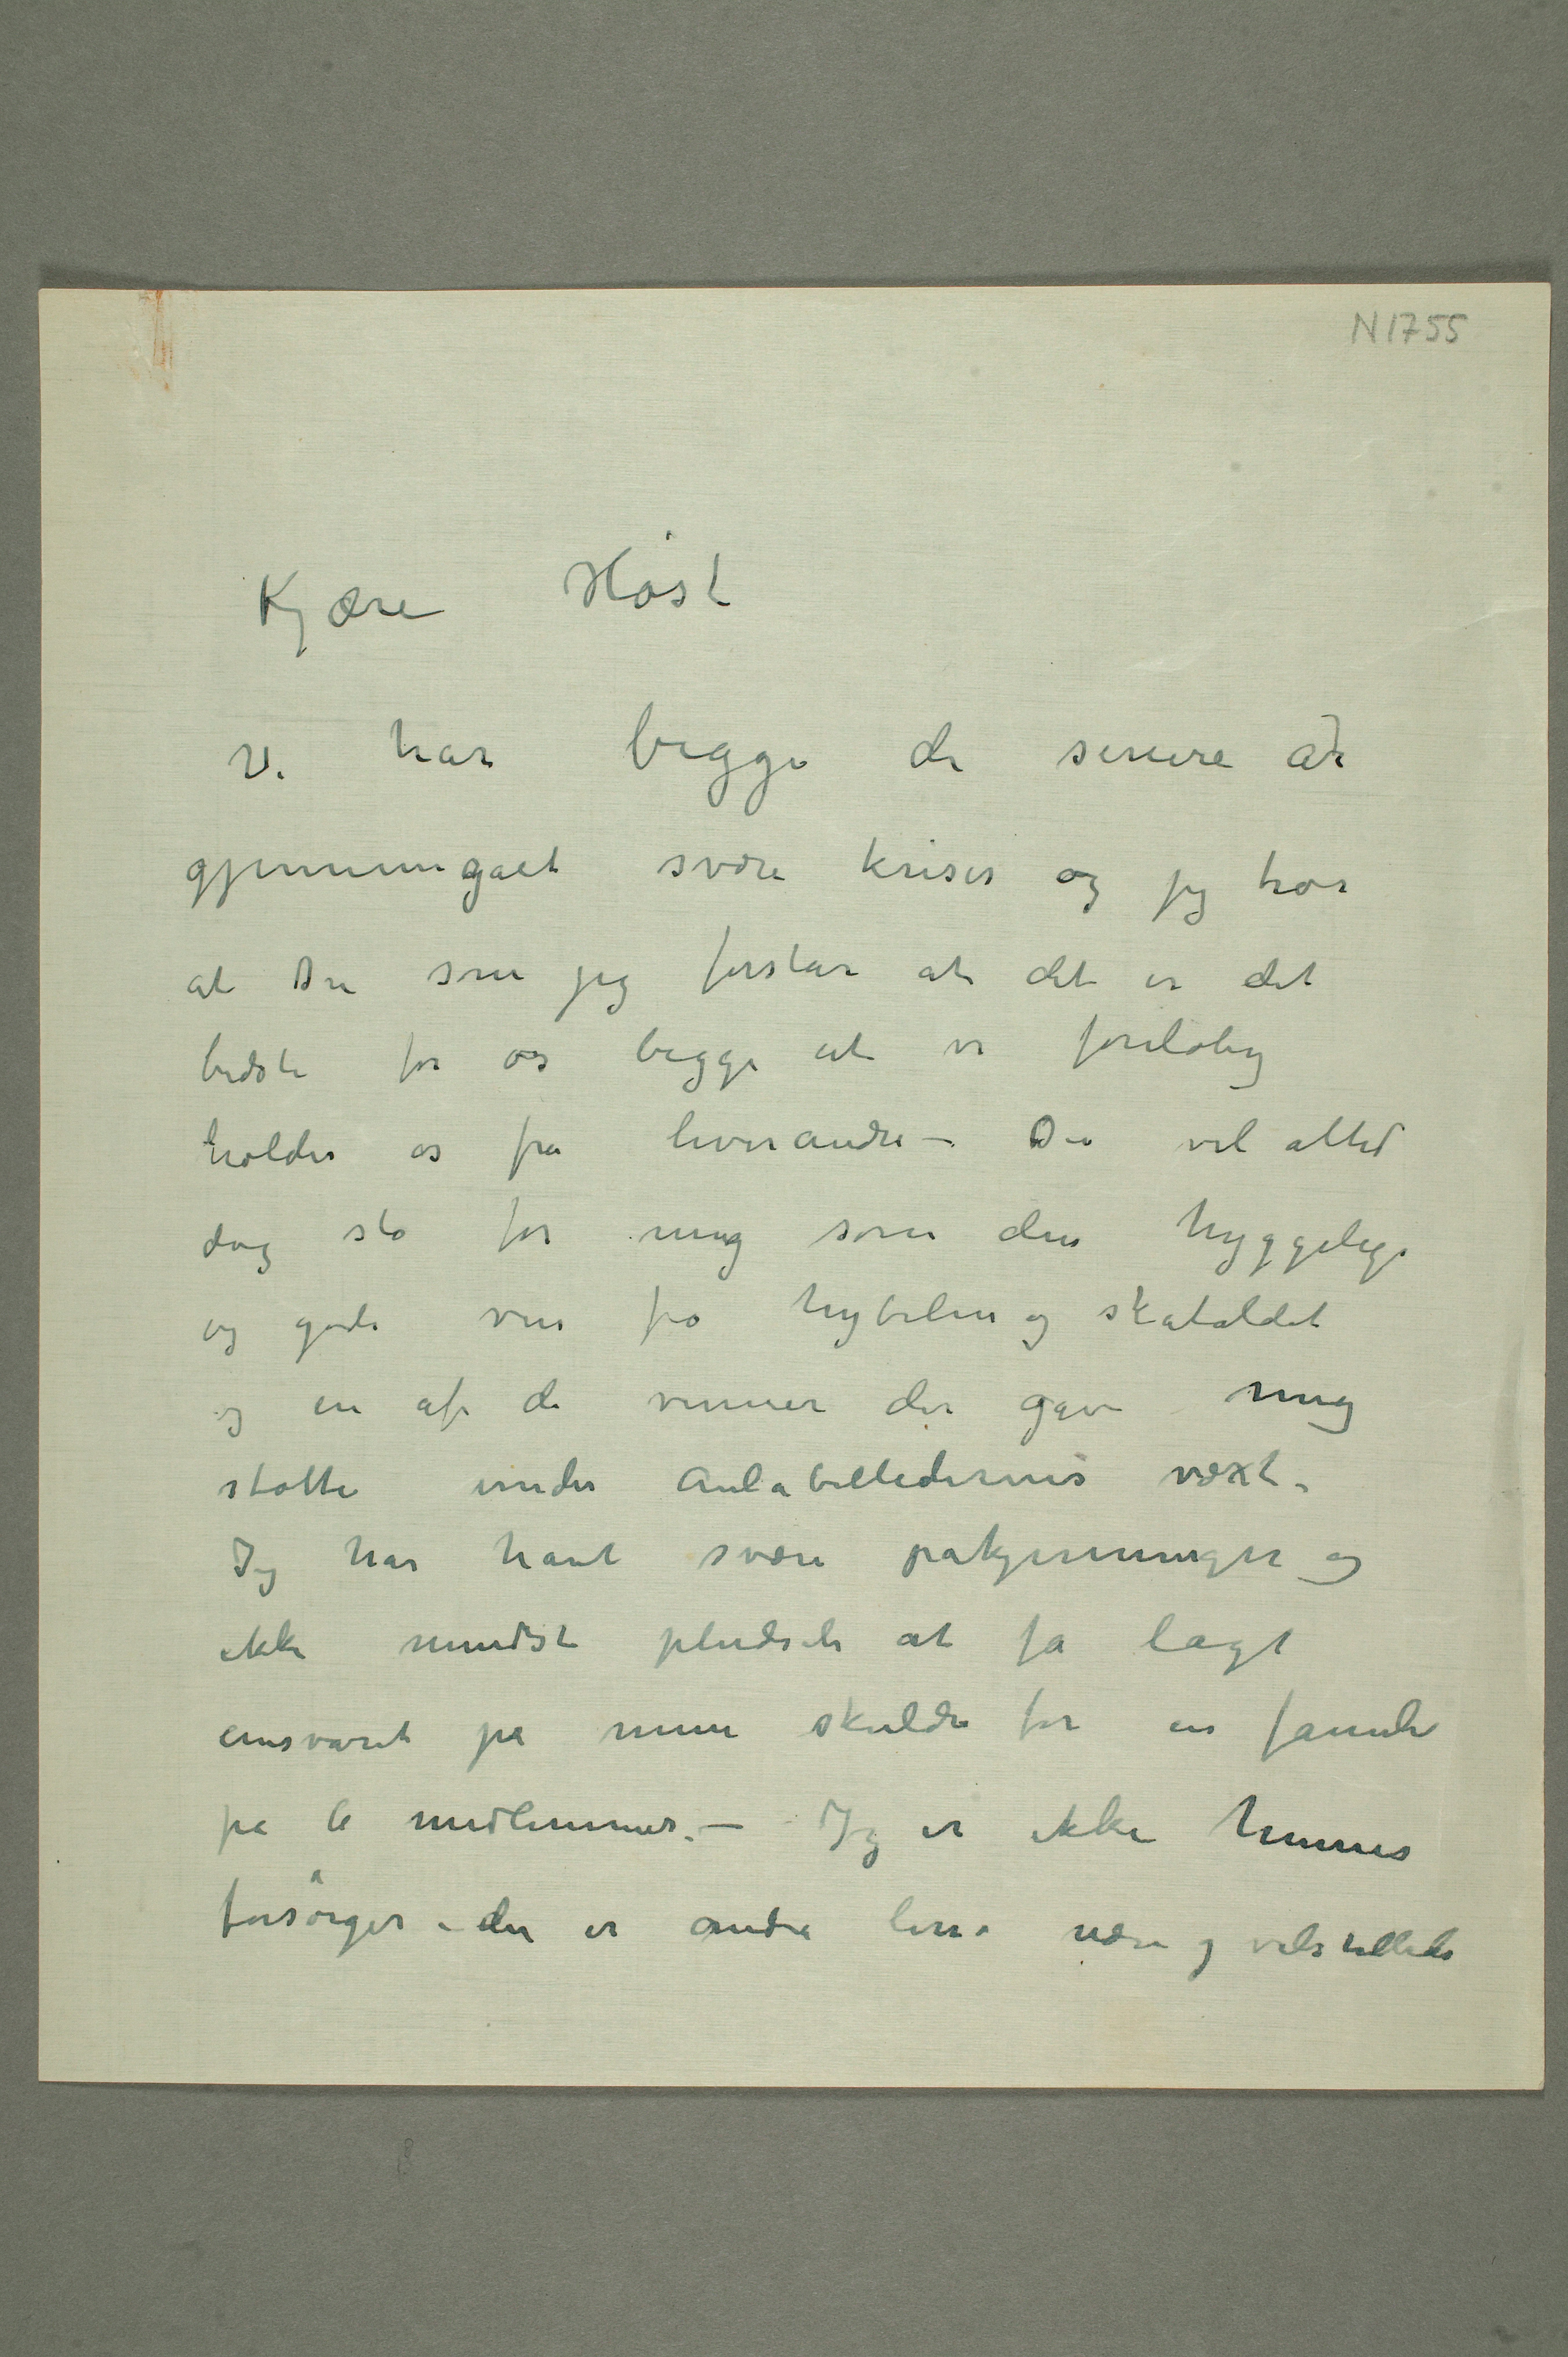 N 1755
Kjære Høst
Vi har begge de senere år
gjennemgået svære kriser og jeg tror
at Du som jeg forstår at det er det
bedste for os begge at vi foreløbig
holder os fra hverandre – Du vil altid
dog stå for mig som den hyggelige
og gode ven fra hybelen og skataldet
og en af de venner der gav mig
støtte under Aulabilledernes væxt –
Jeg har havt svære påkjenninger og
ikke mindst pludseli at få lagt
ansvaret på mine skuldre for en famili
på 6 medlemmer. – Jeg er ikke hennes
forsørger – der er andre hende nære og velstillede